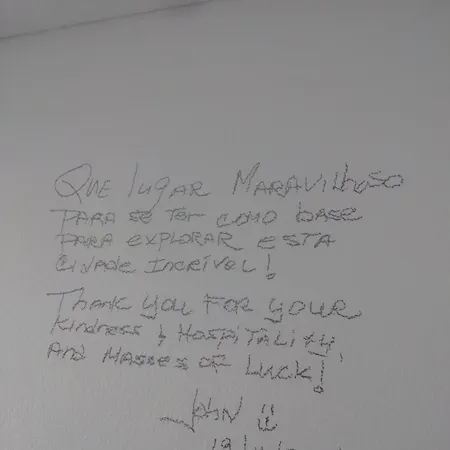 QUE lugar MARAVILHOSO
PARA se ter como base
PARA EXPLORAR ESTA
CIDADE INCRÍVEL!
THANK YOU FOR YOUR
Kindness & HOSPITALITY,
AND MASSES OF LUCK!
JOHN